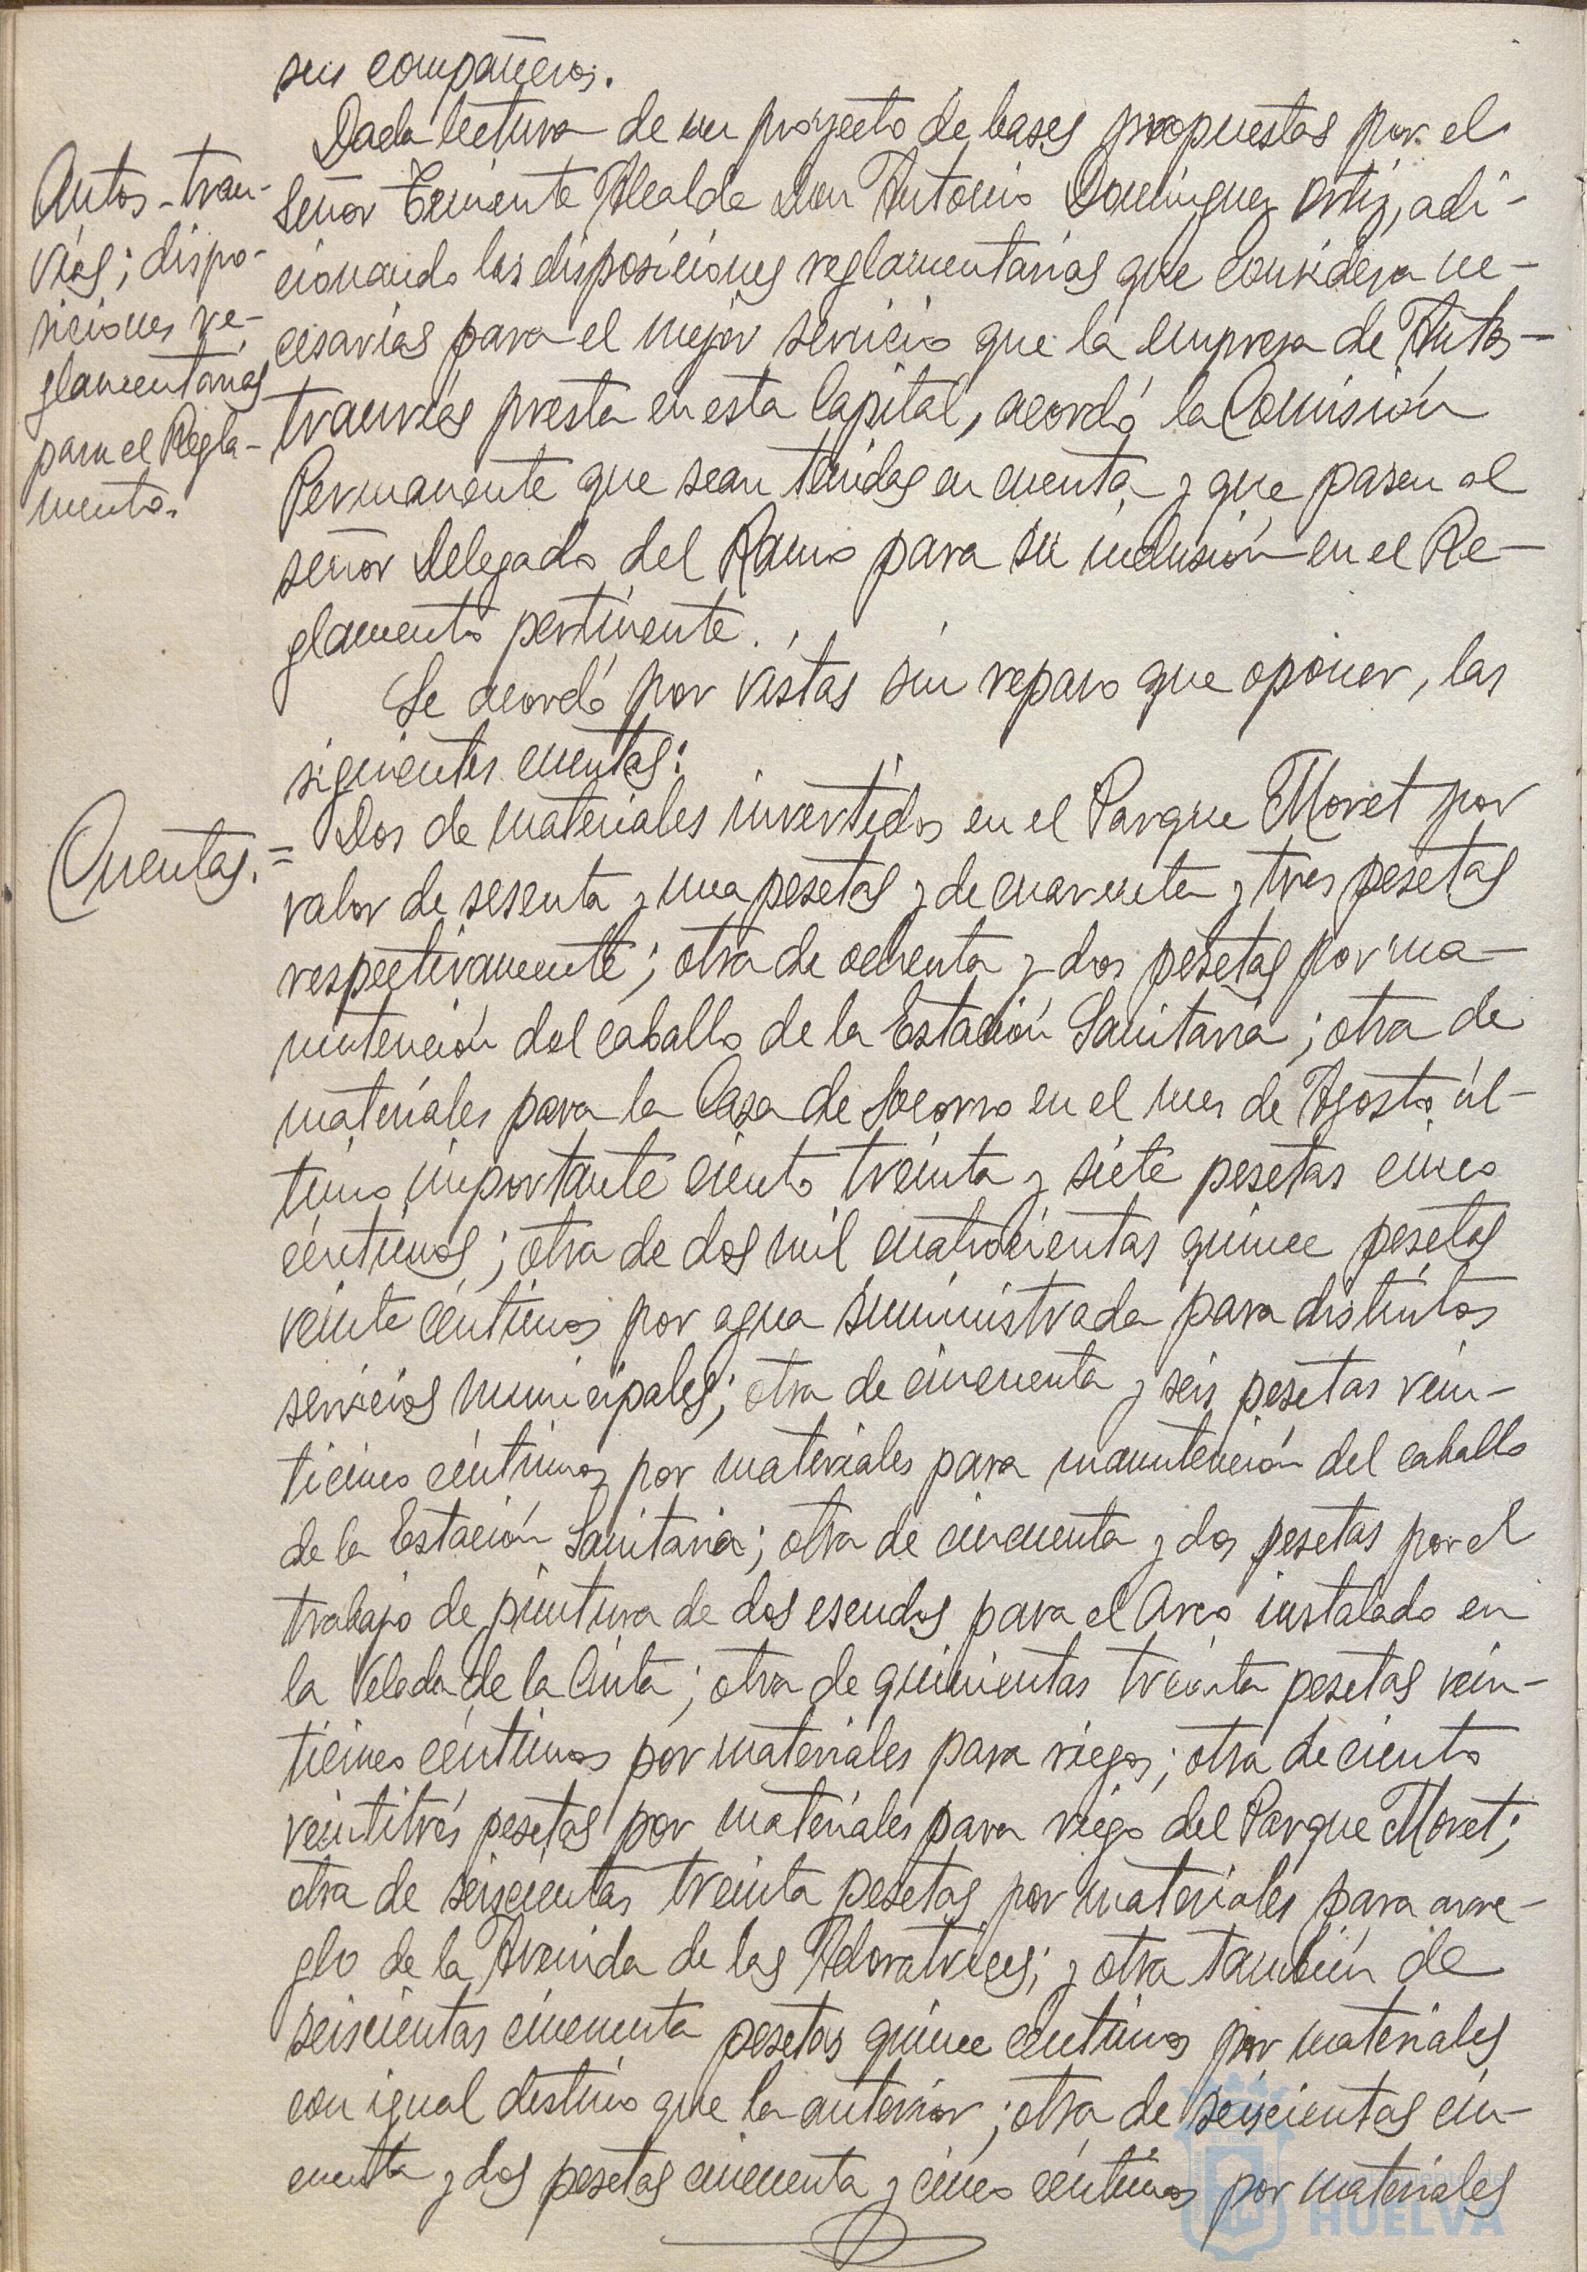 sus compañeros.
Dada lectura de un proyecto de bases propuestas por el
Autos-tran-
vías; dispo-
siciones re-
glamentarias
para el Regla-
mento.
Señor Teniente Alcalde Don Antonio Domínguez Ortiz, adi-
cionando las disposiciones reglamentarias que considera ne-
cesarias para el mejor servicio que la empresa de Autos-
tranvías presta en esta Capital, acordó la Comisión
Permanente que sean tenidas en cuenta y que pasen al
señor Delegado del Ramo para su inclusión en el Re-
glamento pertinente.
Se acordó por vistas sin reparo que oponer, las
siguientes cuentas:
Cuentas.=
Dos de materiales invertidos en el Parque Moret por
valor de sesenta y una pesetas y de cuarenta y tres pesetas
respectivamente; otra de ochenta y dos pesetas por ma-
nutención del caballo de la Estación Sanitaria; otra de
materiales para la Casa de Socorro en el mes de Agosto úl-
timo importante ciento treinta y siete pesetas cinco
céntimos; otra de dos mil cuatrocientas quince pesetas
veinte céntimos por agua suministrada para distintos
servicios municipales; otra de cincuenta y seis pesetas vein-
ticinco céntimos por materiales para manutención del caballo
de la Estación Sanitaria; otra de cincuenta y dos pesetas por el
trabajo de pintura de dos escudos para el Arco instalado en
la Velada de la Cinta; otra de quinientas treinta pesetas vein-
ticinco céntimos por materiales para riegos; otra de ciento
veintitrés pesetas por materiales para riego del Parque Moret;
otra de seiscientas treinta pesetas por materiales para arre-
glo de la Avenida de las Adoratrices; y otra también de
seiscientas cincuenta pesetas quince céntimos por materiales
con igual destino que la anterior; otra de seiscientas cin-
cuenta y dos pesetas cincuenta y cinco céntimos por materiales
Ayuntamiento de
HUELVA